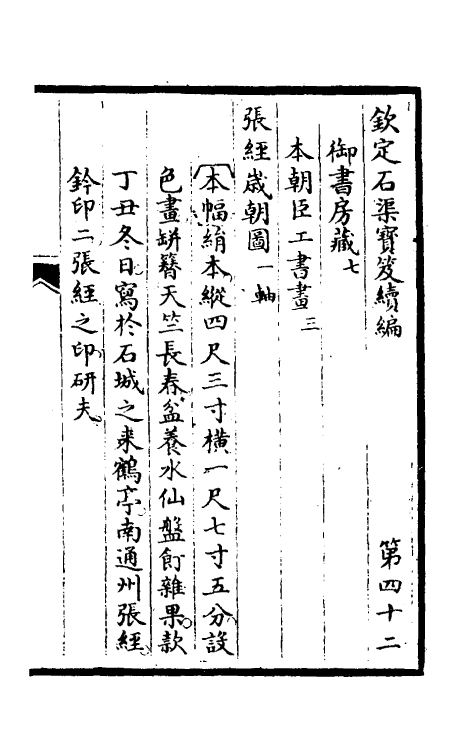 欽定石渠寶笈續編 第四十二
御書房藏七
本朝臣工書畫三
張經歲朝圖一軸
本幅絹本縱四尺三寸橫一尺七寸五分設
色畫缾簪天竺長春盆養水仙盤飣雜果款
丁丑冬日寫於石城之来鶴亭南通州張經
鈐印二張經之印研夫